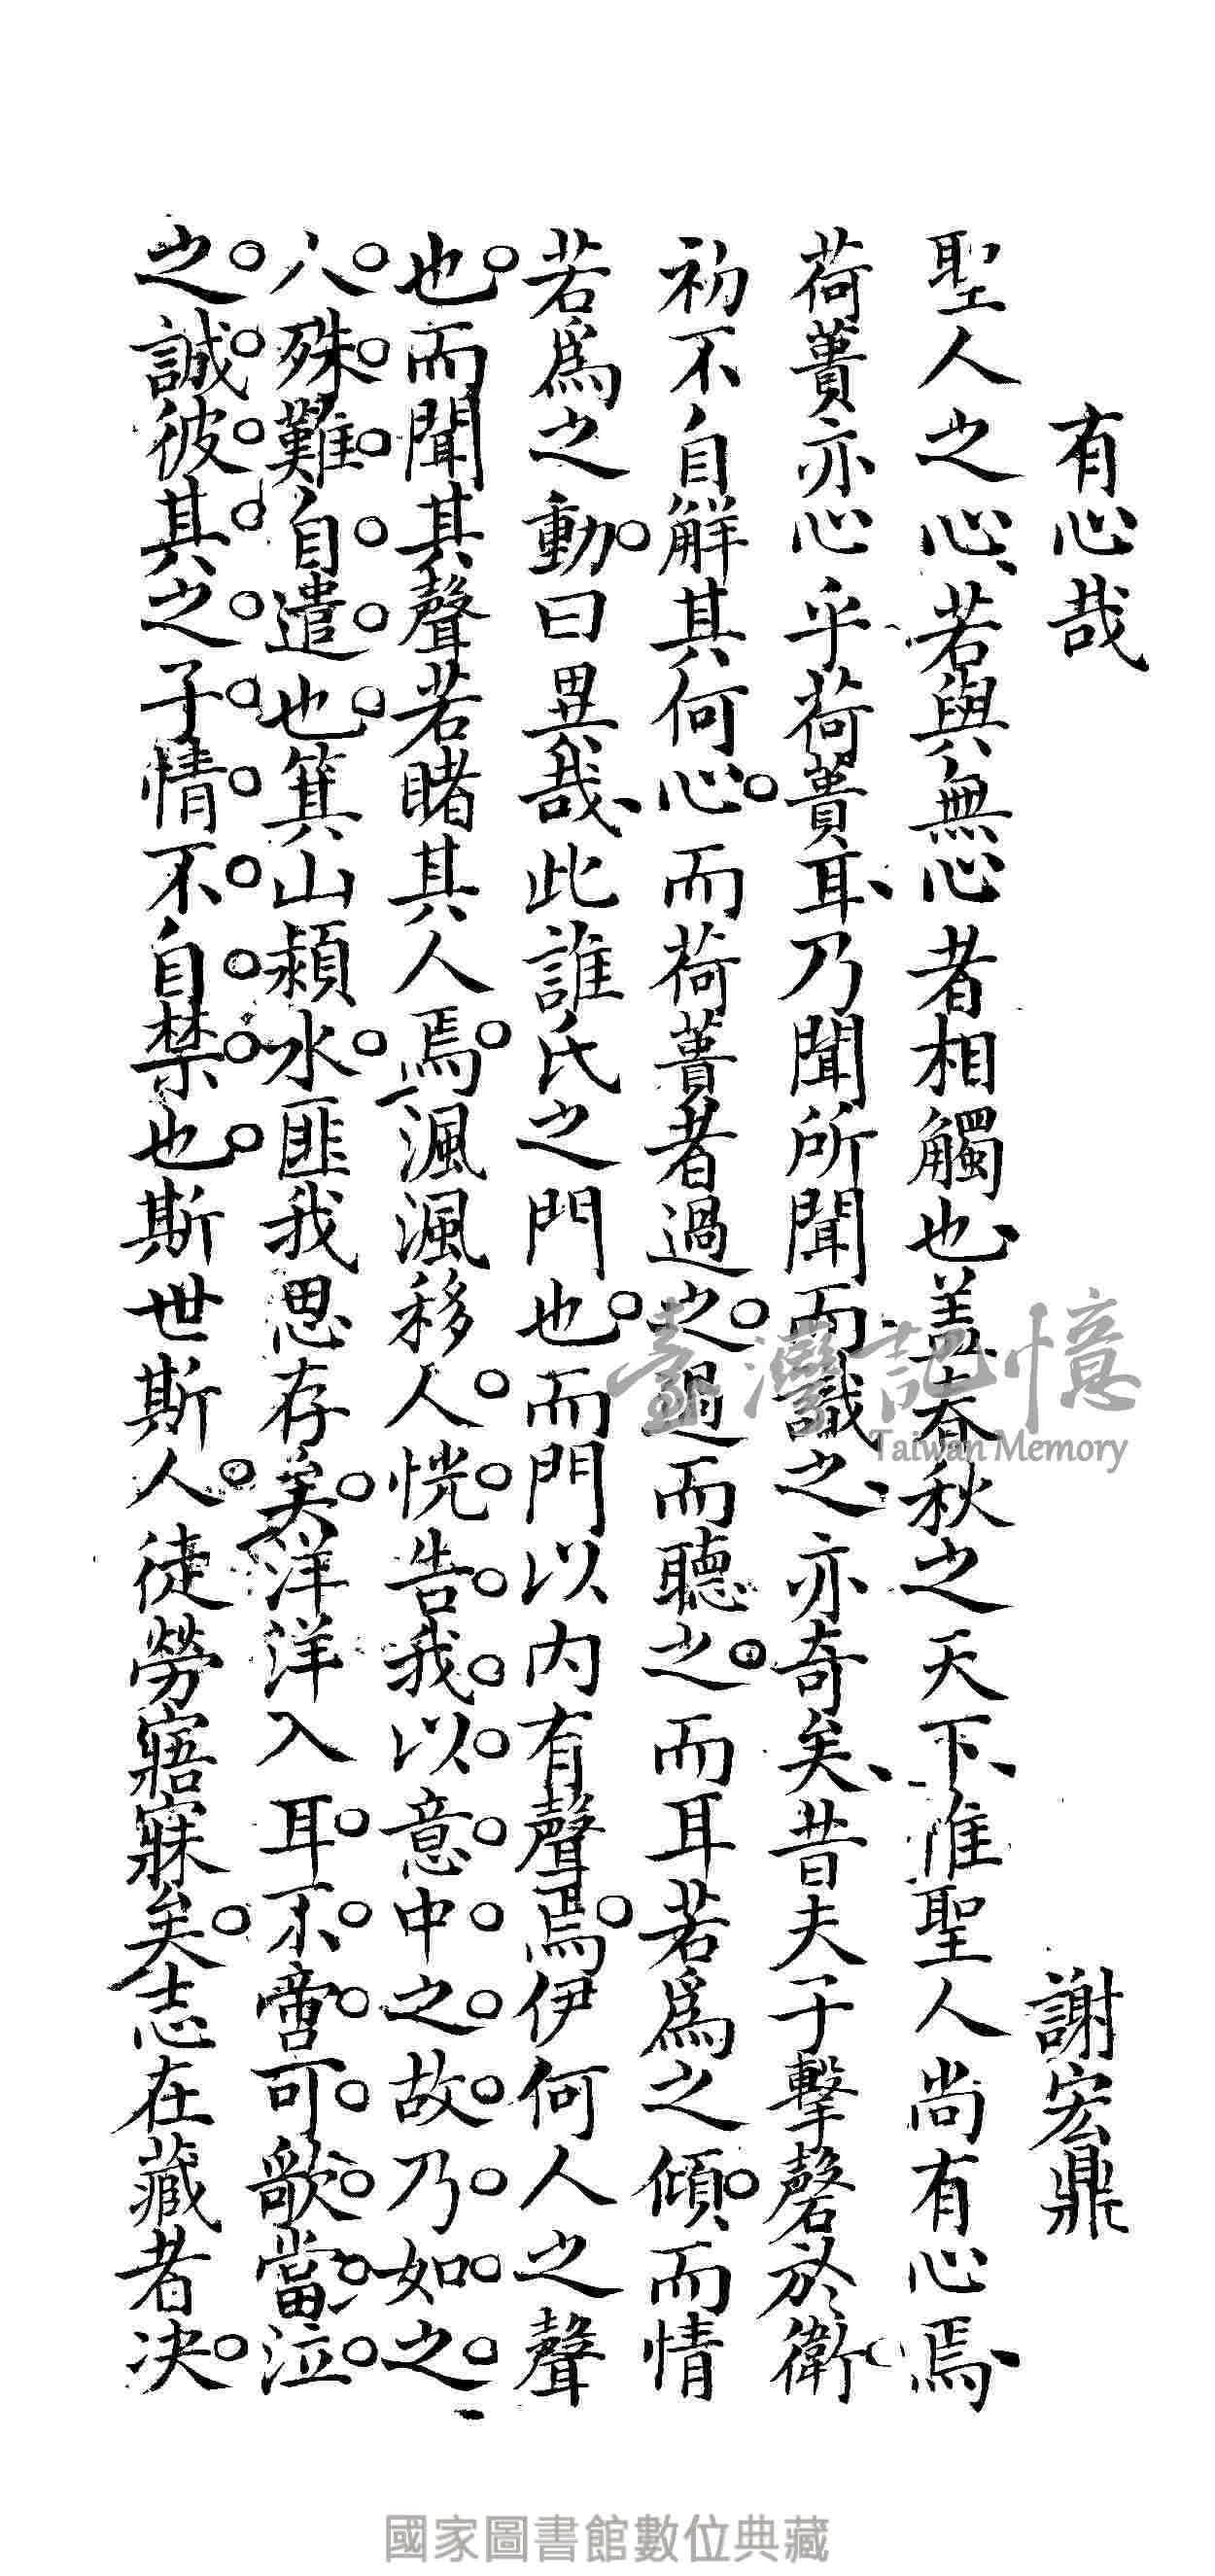 有心哉
謝宏鼎
聖人之心、若與無心者相觸也、盖春秋之天下、惟聖人尚有心焉、
荷蕢亦心乎荷蕢耳、乃聞所聞而識之、亦奇矣、昔夫子擊磬於衛
初不自解其何心。而荷蕢者過之。過而聽之。而耳若為之傾。而情
若爲之動。曰異哉、此誰氏之門也。而門以內有聲焉。伊何人之聲
也。而聞其聲若睹其人焉。渢渢移人。恍。告。我。以。意。中。之。故。乃。如。之。
人。殊。難。自。遣。也。箕山潁水。匪我思存矣。洋洋入耳。不。啻。可。歌。當。泣。
之。誠。彼。其。之。子。情。不。自。禁。也。斯世斯人。徒勞寤寐矣。志在藏者决。
臺灣記憶
Taiwan Memory
國家圖書館數位典藏